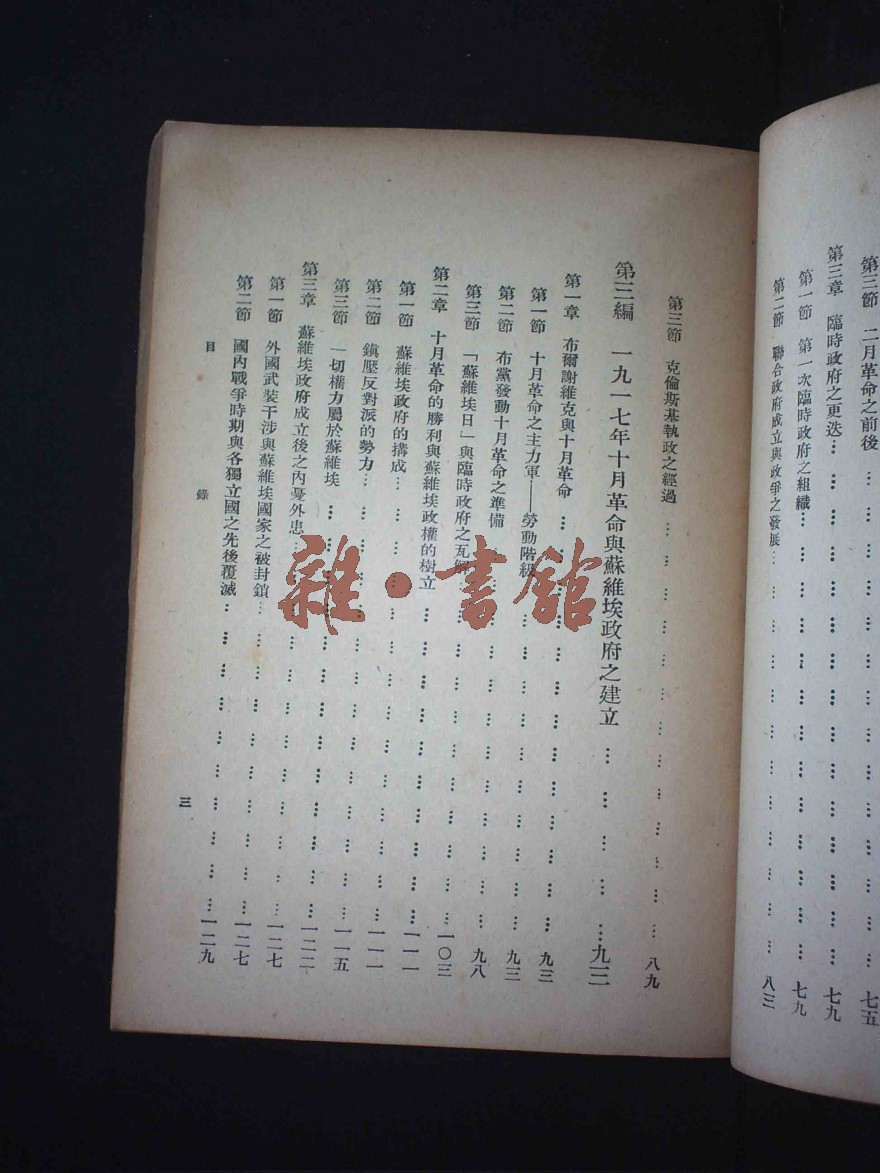 第三節 二月革命之前後 … 七五
第三章 臨時政府之更迭 … … … … … … … … … … … … … 七九
第一節 第一次臨時政府之組織 … … … … … … … … … … … 七九
第二節 聯合政府成立與政爭之發展 … … … … … … … … … … 八三
第三節 克倫斯基執政之經過 … … … … … … … … … … … … 八九
第三編 一九一七年十月革命與蘇維埃政府之建立 … … … … … … 九三
第一章 布爾謝維克與十月革命 … … … … … … … … … … … 九三
第一節 十月革命之主力軍——勞動階級 … … … … … … … … … 九三
第二節 布黨發動十月革命之準備 … … … … … … … … … … … 九八
第三節 「蘇維埃日」與臨時政府之瓦解 … … … … … … … … 一〇三
第二章 十月革命的勝利與蘇維埃政權的樹立 … … … … … … … 一一一
第一節 蘇維埃政府的搆成 … … … … … … … … … … … … 一一一
第二節 鎮壓反對派的勢力 … … … … … … … … … … … … 一一五
第三節 一切權力屬於蘇維埃 … … … … … … … … … … … 一二二
第三章 蘇維埃政府成立後之內憂外患 … … … … … … … … … 一二七
第一節 外國武裝干涉與蘇維埃國家之被封鎖 … … … … … … … 一二七
第二節 國內戰爭時期與各獨立國之先後覆滅 … … … … … … … 一二九
目錄
三
雜·書館